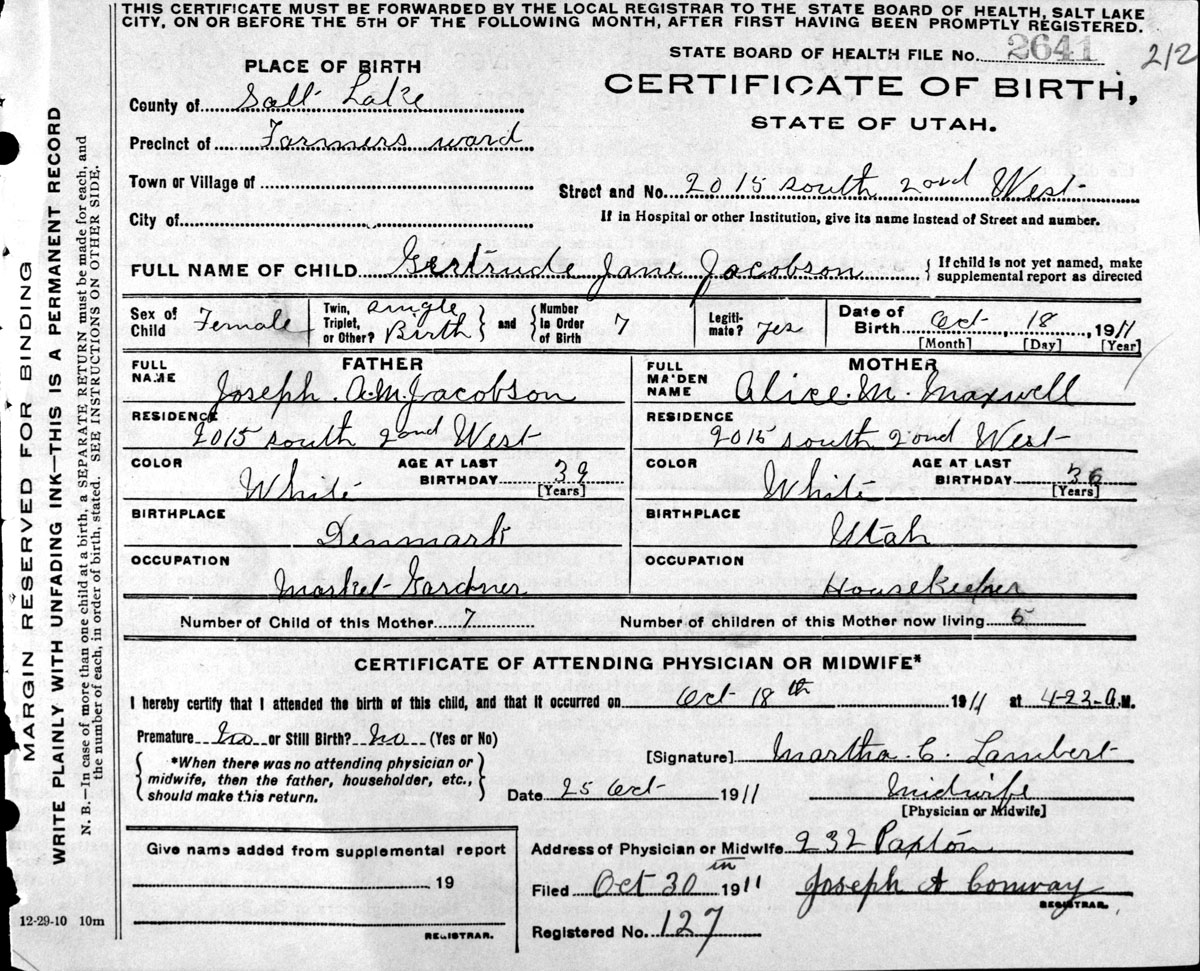 THIS CERTIFICATE MUST BE FORWARDED BY THE LOCAL REGISTRAR TO THE STATE BOARD OF HEALTH, SALT LAKE
CITY, ON OR BEFORE THE 5TH OF THE FOLLOWING MONTH, AFTER FIRST HAVING BEEN PROMPTLY REGISTERED.
STATE BOARD OF HEALTH FILE No. 2641 212
PLACE OF BIRTH
CERTIFICATE OF BIRTH,
STATE OF UTAH.
County of Salt Lake
Precinct of Farmers ward
Town or Village of
Street and No. 2015 south 2ond West
City of
If in Hospital or other Institution, give its name instead of Street and number.
FULL NAME OF CHILD Gertrude Jane Jacobson { If child is not yet named, make
supplemental report as directed
Sex of Child Female
Twin, Triplet, or Other? single Birth and Number in Order of Birth 7
Legiti-mate? yes
Date of Birth Oct, 18, 1911
[Month] [Day] [Year]
FATHER
FULL NAME Joseph A.M. Jacobson
RESIDENCE 2015 south 2ond West
COLOR White AGE AT LAST BIRTHDAY 39 [Years]
BIRTHPLACE Denmark
OCCUPATION Market Gardner
MOTHER
FULL MAIDEN NAME Alice M. Maxwell
RESIDENCE 2015 south 2ond West
COLOR White AGE AT LAST BIRTHDAY 36 [Years]
BIRTHPLACE Utah
OCCUPATION HouseKeeper
Number of Child of this Mother 7 Number of children of this Mother now living 5
CERTIFICATE OF ATTENDING PHYSICIAN OR MIDWIFE*
I hereby certify that I attended the birth of this child, and that it occurred on Oct 18th 1911 at 4-23-A.M.
Premature No or Still Birth? No (Yes or No)
*When there was no attending physician or
midwife, then the father, householder, etc.,
should make this return.
[Signature] Martha. C. Lambert
Date 25 Oct 1911 Midwife
[Physician or Midwife]
Give name added from supplemental report
19
REGISTRAR.
Address of Physician or Midwife 232 Paxton
Filed Oct 30 1911 Joseph A Conway
REGISTRAR.
Registered No. 127
MARGIN RESERVED FOR BINDING
WRITE PLAINLY WITH UNFADING INK—THIS IS A PERMANENT RECORD
N. B.—In case of more than one child at a birth, a SEPARATE RETURN must be made for each, and
the number of each, in order of birth, stated. SEE INSTRUCTIONS ON OTHER SIDE.
12-29-10 10m